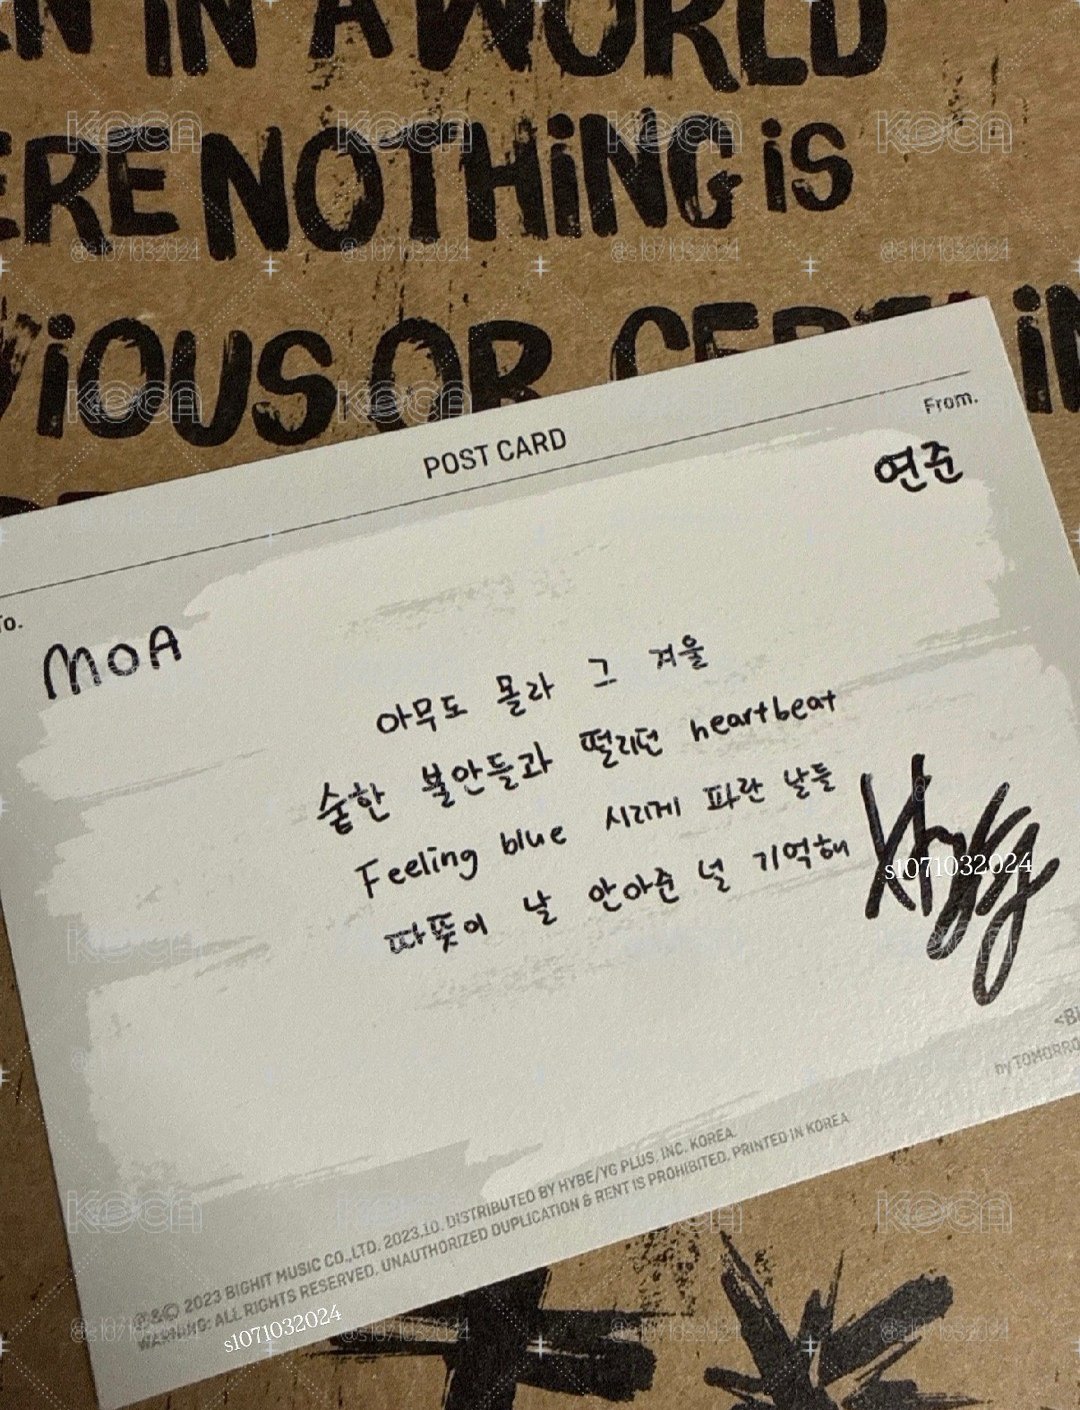 N IN A WORLD
ERE NOTHiNG iS
ViOUS OR CERTAiN
POST CARD
From.
연준
To.
MOA
아무도 몰라 그 겨울
숱한 불안들과 떨리던 heartbeat
Feeling blue 시리게 파란 날들
따뜻이 날 안아준 널 기억해
s1071032024
by TOMORRO
℗&© 2023 BIGHIT MUSIC CO.,LTD. 2023.10. DISTRIBUTED BY HYBE/YG PLUS, INC. KOREA.
WARNING: ALL RIGHTS RESERVED. UNAUTHORIZED DUPLICATION & RENT IS PROHIBITED. PRINTED IN KOREA
s1071032024
KOCA
@s1071032024